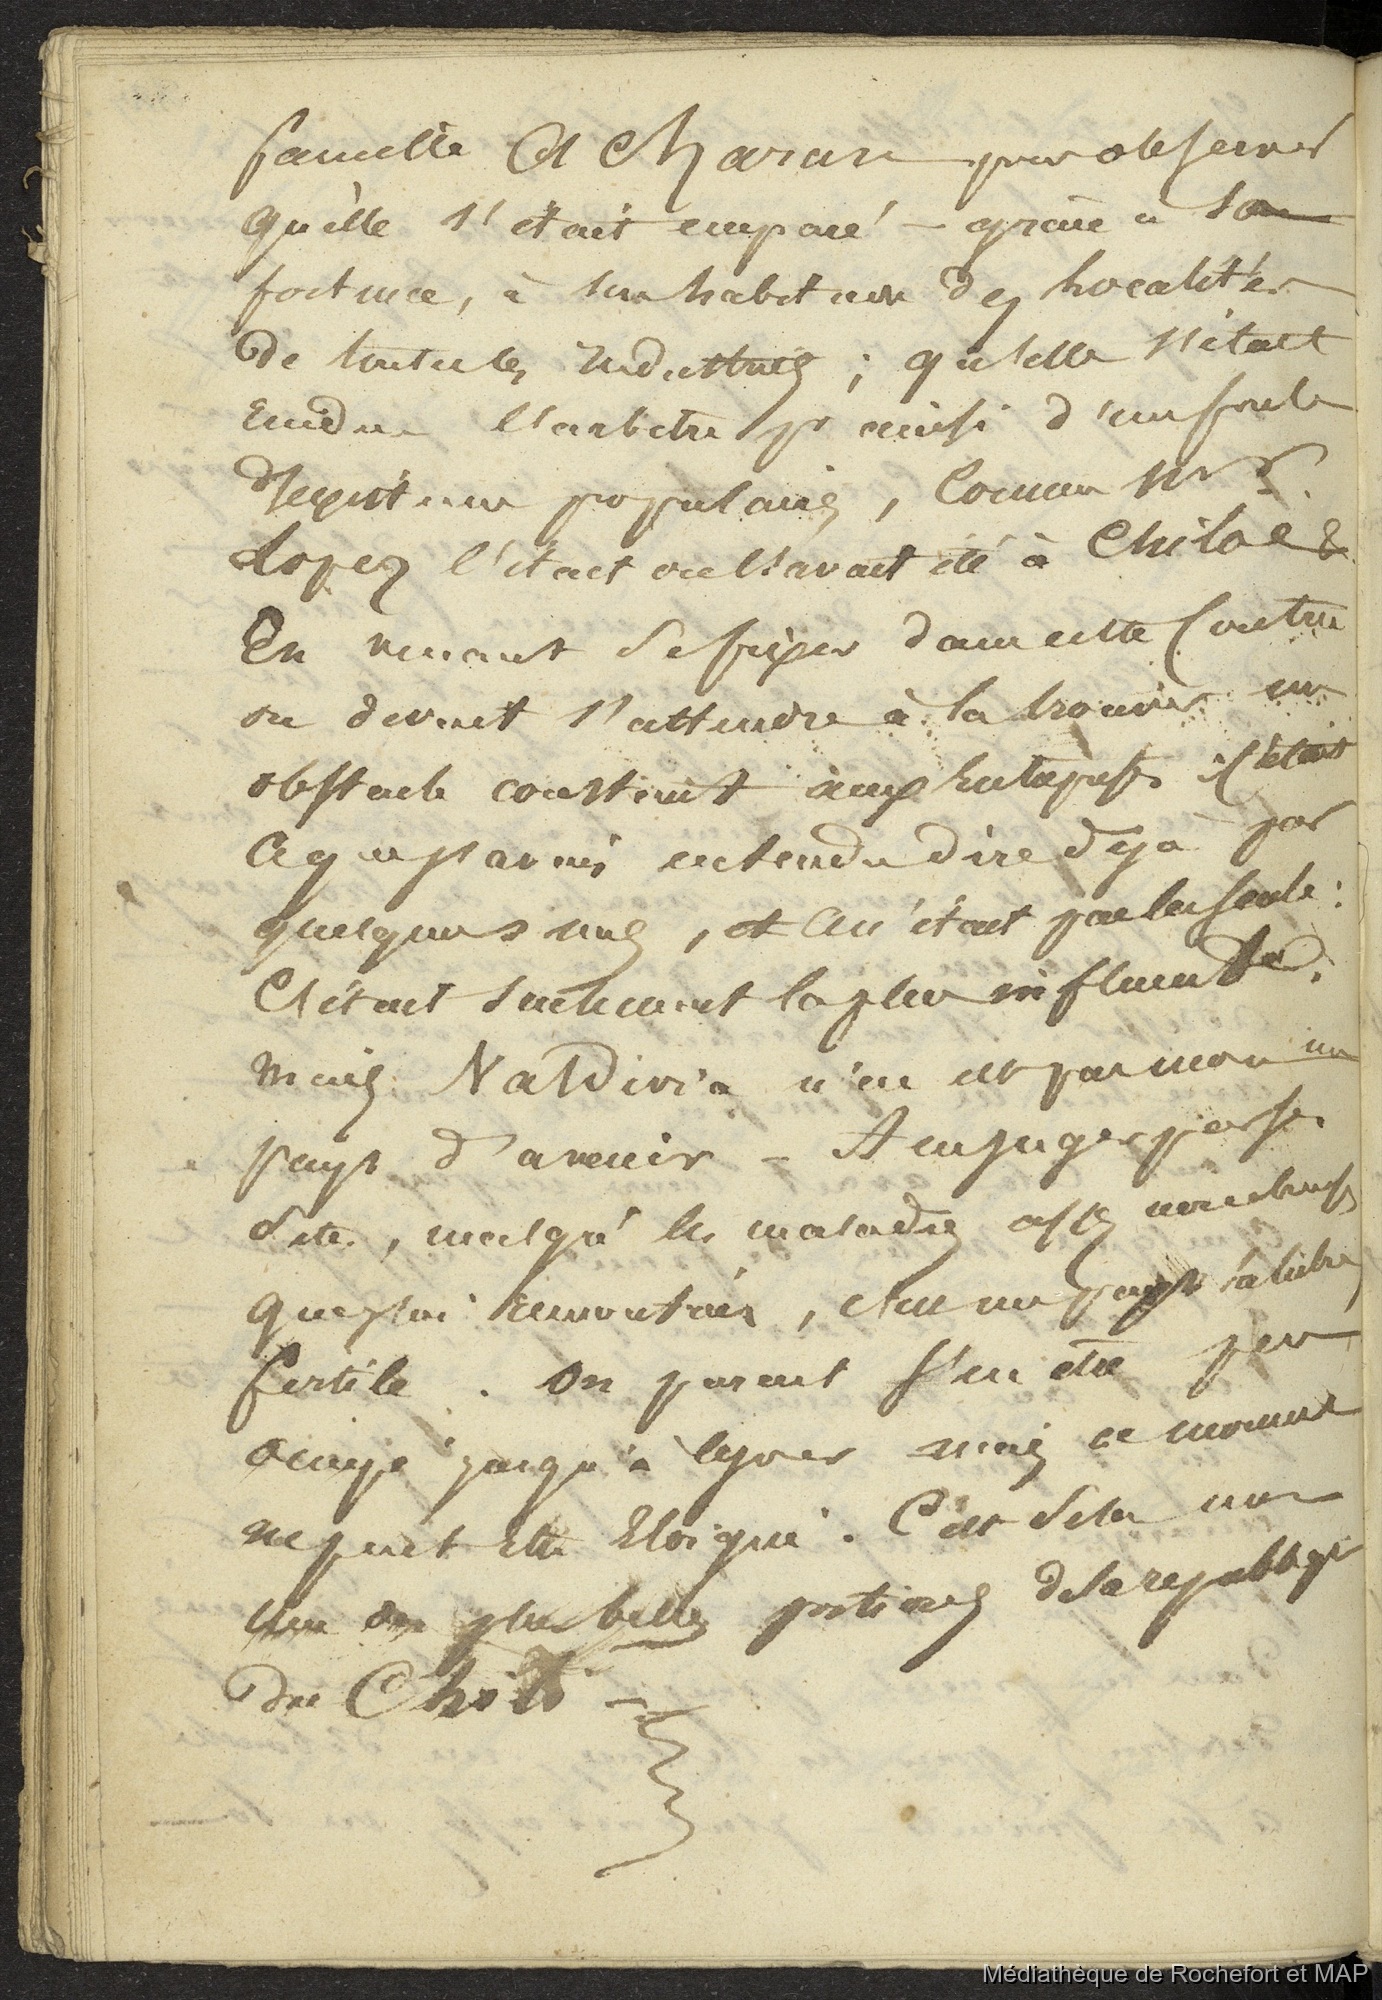 famille pour observer
qu'elle s'était emparé - grâce à sa
fortune, à son habitude des localités
de toutes les industries ; qu'elle s'était
rendue l'arbitre pr ainsi d'une foule
populaires, comme Mr
Lopez l'était ou l'avait été à Chiloe &
En venant se fixer dans cette contrée
on devait s'attendre à la trouver un
obstacle constant à l'était
ce que j'avais entendu dire déjà par
quelques uns, et ce n'était pas la seule :
C'était seulement la plus influente.
Mais Valdivia n'en est pas moins un
pays d'avenir - A en juger par
site, malgré les maladies assez nombreuses
que j'ai rencontrées, c'est un pays salubre
fertile. On parait s'en être peu
occupé jusqu'à lejour mais ce moment
ne peut être Eloigné. C'est
une des plus belles portions de la republiqe
du Chili -
Médiathèque de Rochefort et MAP